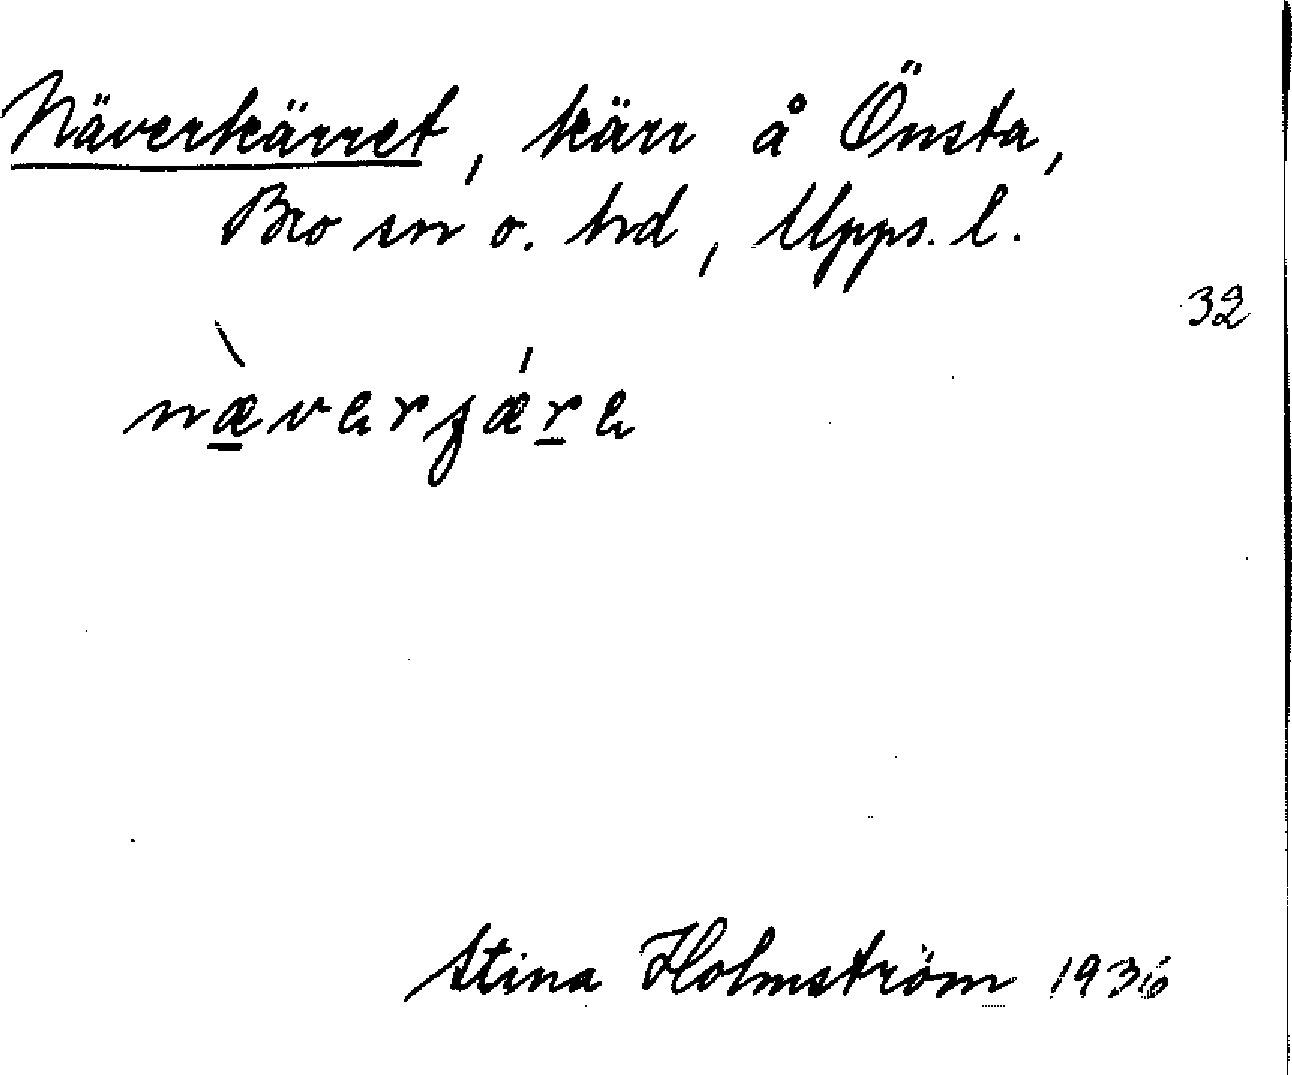 Näverkärret, kärr å Önsta,
Bro sn o. hd, Upps. l.
32
næ̀verʒǽre
Stina Holmström 1936